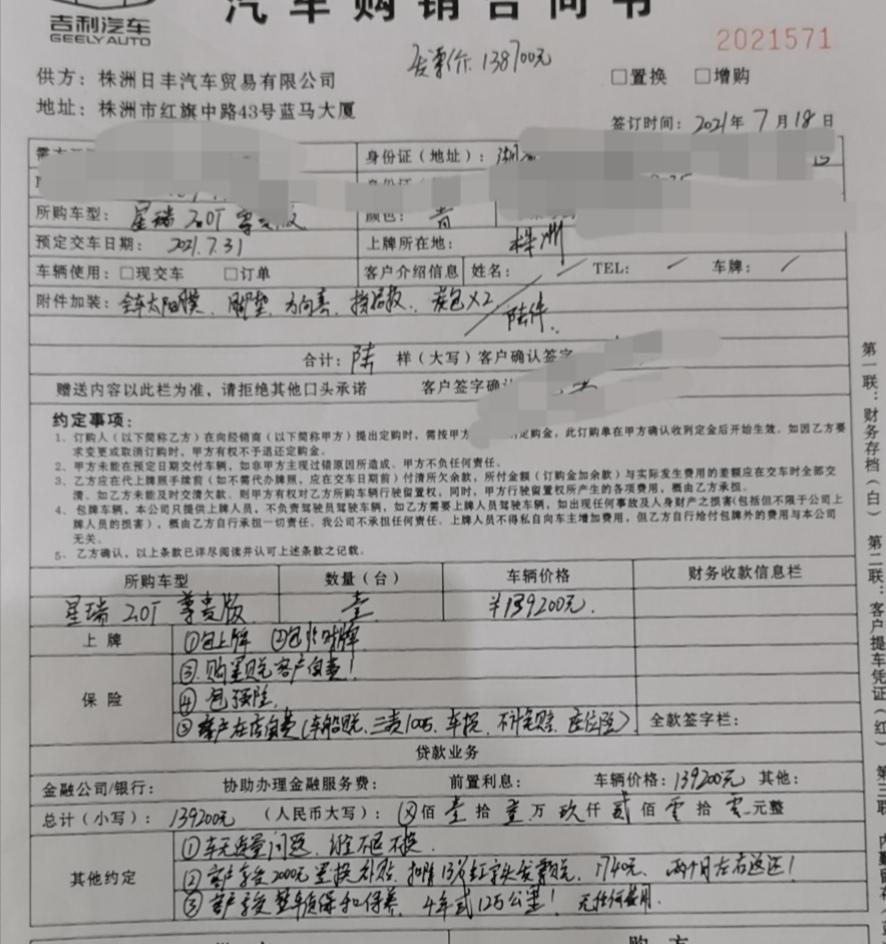 汽车购销合同书
吉利汽车
GEELY AUTO
2021571
发票价:138700元
供方:株洲日丰汽车贸易有限公司
□置换 □增购
地址:株洲市红旗中路43号蓝马大厦
签订时间:2021年7月18日
身份证(地址):湖
所购车型:星瑞 2.0T 尊贵版
颜色:青
预定交车日期:2021.7.31
上牌所在地:株洲
车辆使用:□现交车 □订单
客户介绍信息 姓名: / TEL: / 车牌: /
附件加装:全车太阳膜、脚垫、方向套、挡泥板、炭包X2
陆件.
合计:陆 样(大写)客户确认签字
赠送内容以此栏为准,请拒绝其他口头承诺 客户签字确认
约定事项:
1、订购人(以下简称乙方)在向经销商(以下简称甲方)提出定购时,需按甲方 定购金,此订购单在甲方确认收到定金后开始生效。如因乙方要
求变更或取消订购时,甲方有权不予退还定购金。
2、甲方未能在预定日期交付车辆,如非甲方主观过错原因所造成。甲方不负任何责任。
3、乙方应在代上牌照手续前(如不需代办牌照,应在交车日期前)付清所欠余款,所付金额(订购金加余款)与实际发生费用的差额应在交车时全部交
清。如乙方未能及时交清欠款。则甲方有权对乙方所购车辆行驶留置权,同时,甲方行驶留置权所产生的各项费用,概由乙方承担。
4、包牌车辆,本公司只提供上牌人员,不负责驾驶员驾驶车辆,如乙方需要上牌人员驾驶车辆,如出现任何事故及人身财产之损害(包括但不限于公司上
牌人员的损害),概由乙方自行承担一切责任。我公司不承担任何责任。上牌人员不得私自向车主增加费用,但乙方自行给付包牌外的费用与本公司
无关。
5、乙方确认,以上条款已详尽阅读并认可上述条款之记载。
所购车型 数量(台) 车辆价格 财务收款信息栏
星瑞 2.0T 尊贵版 壹 ¥139200元.
上牌 ①包上牌 ②包临时牌
③.购置税客户自费!
保险 ④包强险.
⑤客户在店自费(车船税、三责100万、车损、不计免赔、座位险) 全款签字栏:
贷款业务
金融公司/银行: 协助办理金融服务费: 前置利息: 车辆价格:139200元 其他:
总计(小写):139200元 (人民币大写):ⓧ佰 壹 拾 壹 万 玖 仟 贰 佰 零 拾 零 元整
①车无质量问题、订金不退不换.
其他约定 ②客户享受2000元置换补贴、扣除13%红字头发票税、1740元、两个月左右返还!
③客户享受整车质保和保养、4年或12万公里!无任何费用.
供方 购方
第一联:财务存档(白) 第二联:客户提车凭证(红) 第三联